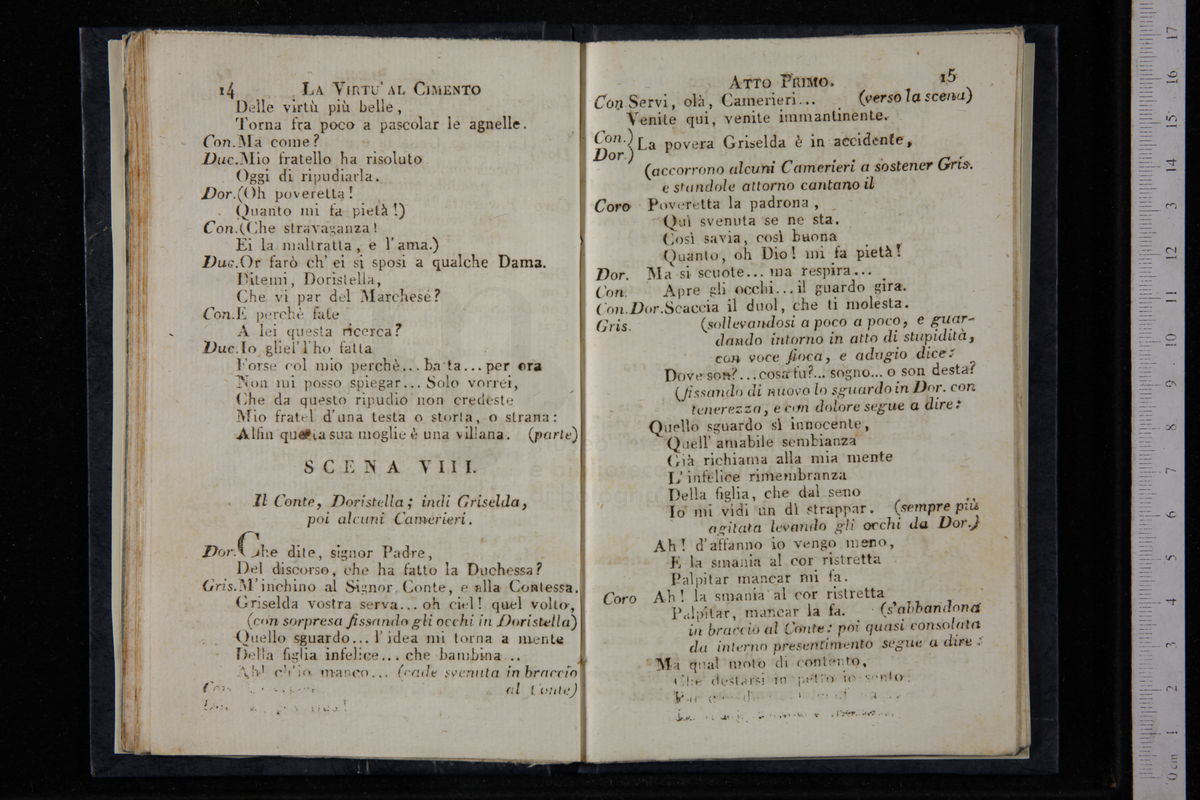 14 LA VIRTU' AL CIMENTO
Delle virtù più belle,
Torna fra poco a pascolar le agnelle.
Con. Ma come?
Duc. Mio fratello ha risoluto
Oggi di ripudiarla.
Dor. (Oh poveretta!
Quanto mi fa pietà!)
Con. (Che stravaganza!
Ei la maltratta, e l'ama.)
Duc. Or farò ch' ei si sposi a qualche Dama.
Ditemi, Doristella,
Che vi par del Marchese?
Con. E perchè fate
A lei questa ricerca?
Duc. Io gliel' l'ho fatta
Forse col mio perchè... basta... per ora
Non mi posso spiegar... Solo vorrei,
Che da questo ripudio non credeste
Mio fratel d'una testa o storta, o strana:
Alfin questa sua moglie è una villana. (parte)
SCENA VIII.
Il Conte, Doristella; indi Griselda,
poi alcuni Camerieri.
Dor. Che dite, signor Padre,
Del discorso, che ha fatto la Duchessa?
Gris. M'inchino al Signor Conte, e alla Contessa.
Griselda vostra serva... oh ciel! quel volto,
(con sorpresa fissando gli occhi in Doristella)
Quello sguardo... l'idea mi torna a mente
Della figlia infelice... che bambina...
Ah! ch'io manco... (cade svenuta in braccio
al Conte)
Con.
15 ATTO PRIMO.
Con. Servi, olà, Camerieri... (verso la scena)
Venite qui, venite immantinente.
Con.) Dor.) La povera Griselda è in accidente,
(accorrono alcuni Camerieri a sostener Gris.
e standole attorno cantano il
Coro Poveretta la padrona,
Quì svenuta se ne sta.
Così savia, così buona
Quanto, oh Dio! mi fa pietà!
Dor. Ma si scuote... ma respira...
Con. Apre gli occhi... il guardo gira.
Con. Dor. Scaccia il duol, che ti molesta.
Gris. (sollevandosi a poco a poco, e guar-
dando intorno in atto di stupidità,
con voce fioca, e adagio dice:
Dove son?... cosa fu?... sogno... o son desta?
(fissando di nuovo lo sguardo in Dor. con
tenerezza, e con dolore segue a dire:
Quello sguardo sì innocente,
Quell' amabile sembianza
Già richiama alla mia mente
L' infelice rimembranza
Della figlia, che dal seno
Io mi vidi un dì strappar. (sempre più
agitata levando gli occhi da Dor.)
Ah! d'affanno io vengo meno,
E la smania al cor ristretta
Palpitar mancar mi fa.
Coro Ah! la smania al cor ristretta
Palpitar, mancar la fa. (s'abbandona
in braccio al Conte: poi quasi consolata
da interno presentimento segue a dire:
Ma qual moto di contento,
Che destarsi in petto io sento: